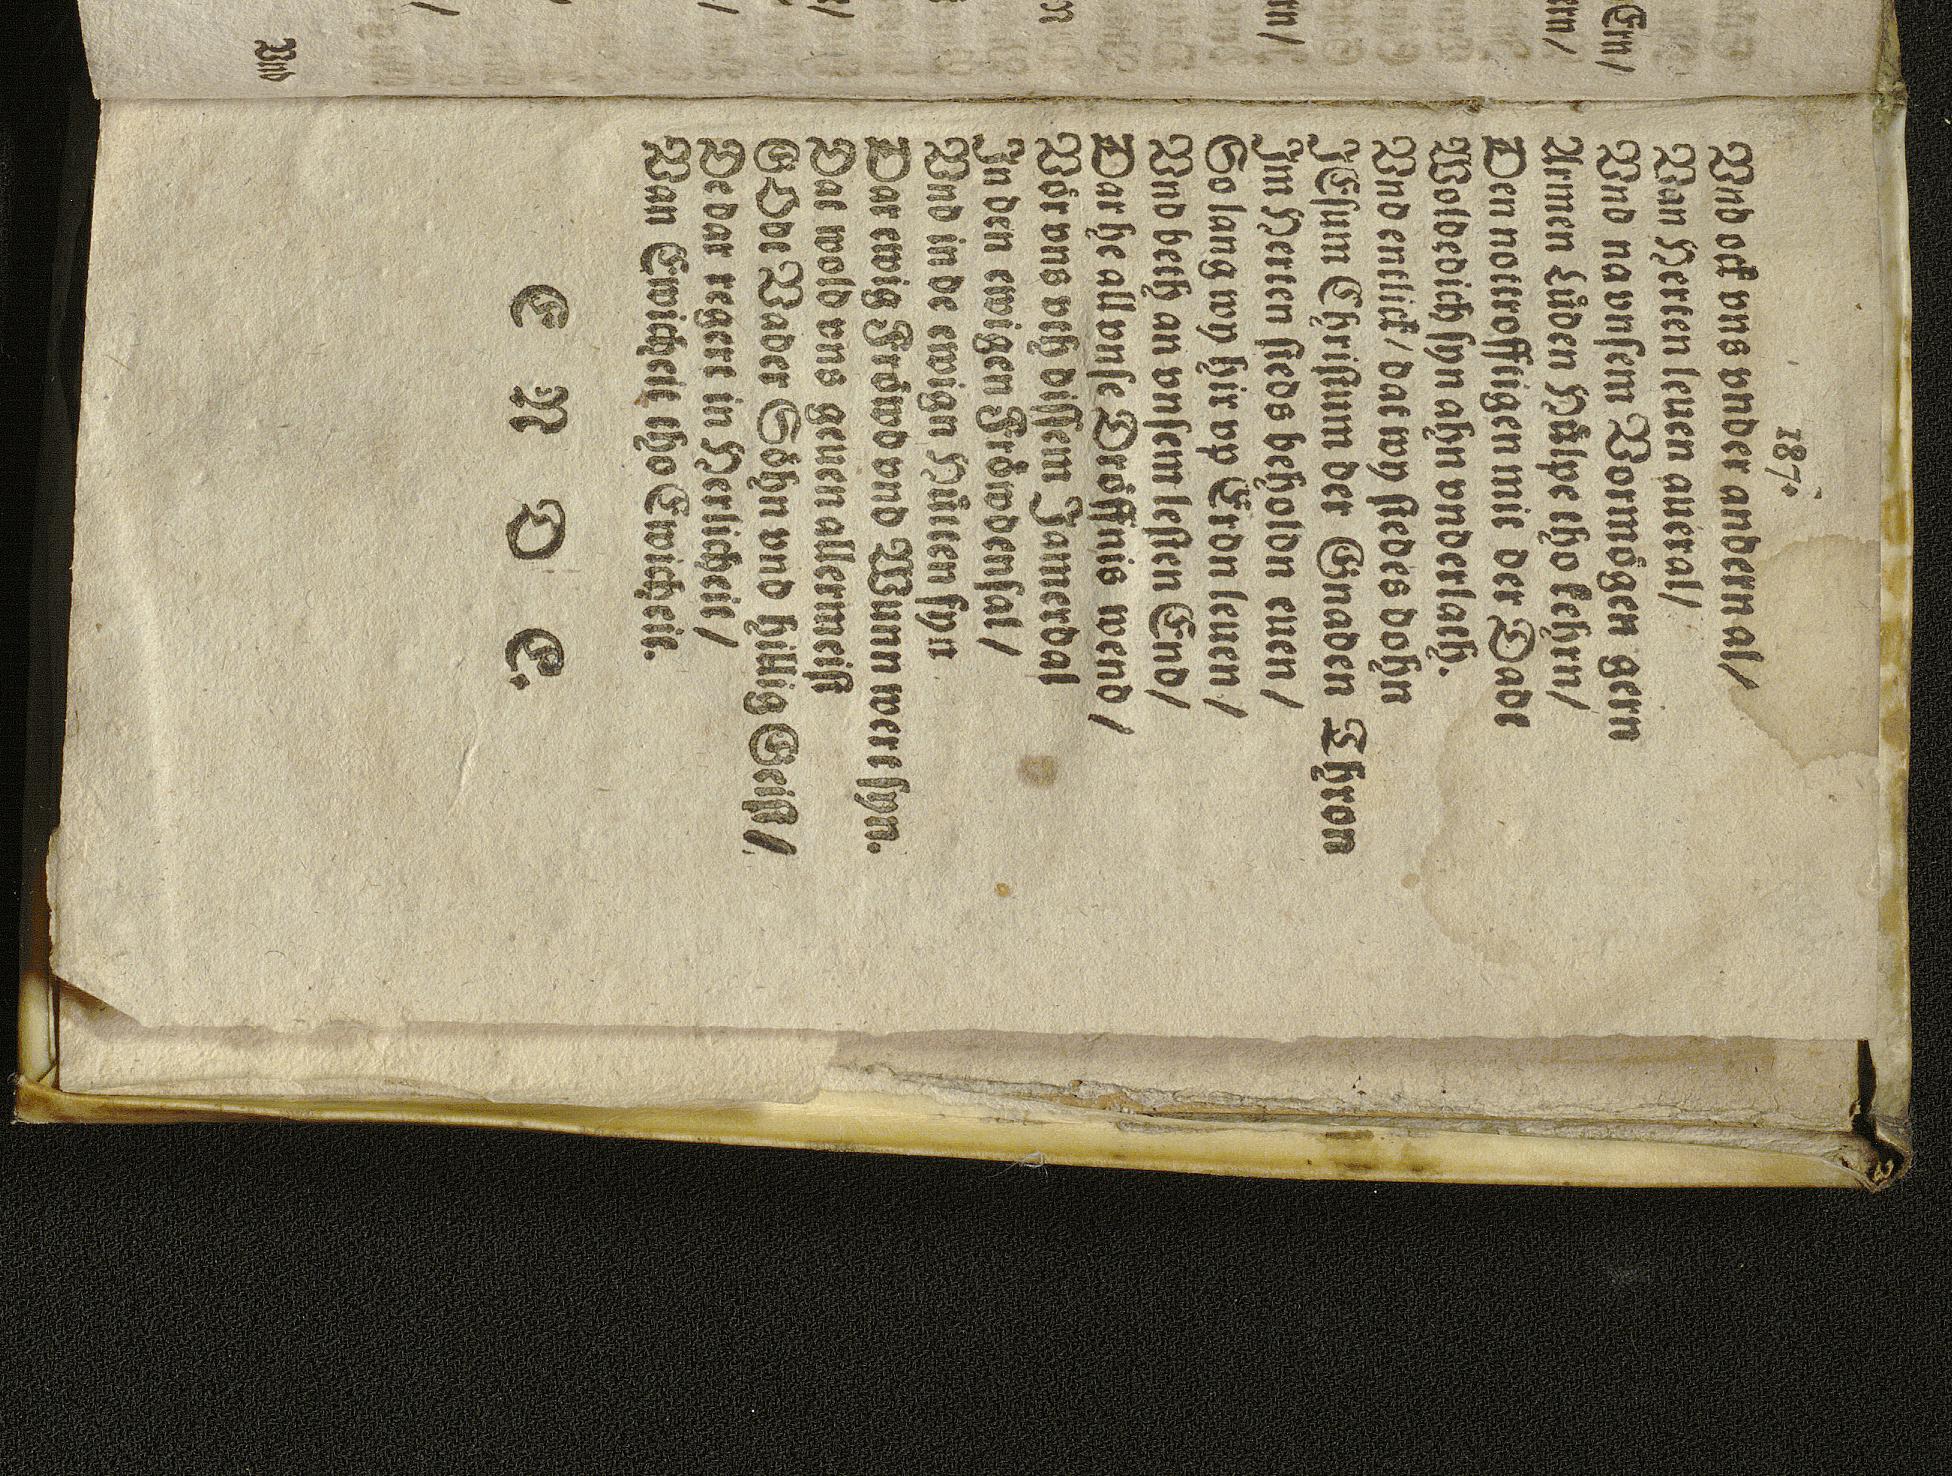 187.
Vnd ock vns vnder andern al/
Van Herten leuen aueral/
Vnd na vnsem Vormögen gern
Armen Lüden Hülpe tho kehrn/
Den nottrofftigen mit der Dadt
Woldedich syn ahn vnderlath.
Vnd entlick/ dat wy stedes dohn
JEsum Christum der Gnaden Thron
Jm Herten steds beholdn euen/
So lang wy hir vp Erdn leuen/
Vnd beth an vnsem lesten End/
Dar he all vnse Dröffnis wend/
Vör vns vth dissem Jamerdal
Jn den ewigen Fröwdensal/
Vnd in de ewign Hütten syn
Dar ewig Fröwd vnd Wunn wert syn.
Dat wold vns geuen allermeist
GOdt Vader Söhn vnd hillig Geist/
De dar regert in Herlicheit/
Van Ewicheit tho Ewicheit.
E N D E.
Vnd
Ern/